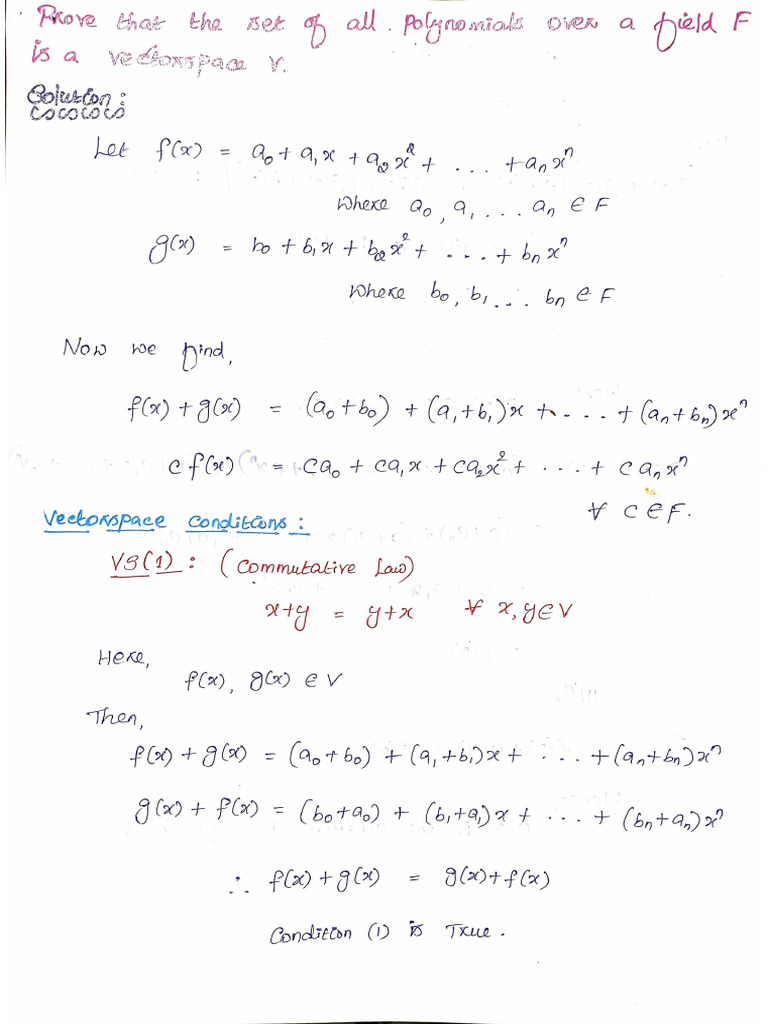 Prove that the set of all polynomials over a field F
is a vectorspace V.
Solution:
Let f(x) = a₀ + a₁x + a₂x² + ... + aₙxⁿ
where a₀, a₁ ... aₙ ∈ F
g(x) = b₀ + b₁x + b₂x² + ... + bₙxⁿ
where b₀, b₁ ... bₙ ∈ F
Now we find,
f(x) + g(x) = (a₀ + b₀) + (a₁ + b₁)x + ... + (aₙ + bₙ)xⁿ
c f(x) = ca₀ + ca₁x + ca₂x² + ... + c aₙxⁿ
∀ c ∈ F.
Vectorspace conditions:
VS(1): (Commutative Law)
x+y = y+x ∀ x, y ∈ V
Here,
f(x), g(x) ∈ V
Then,
f(x) + g(x) = (a₀ + b₀) + (a₁ + b₁)x + ... + (aₙ + bₙ)xⁿ
g(x) + f(x) = (b₀ + a₀) + (b₁ + a₁)x + ... + (bₙ + aₙ)xⁿ
∴ f(x) + g(x) = g(x) + f(x)
Condition (1) is True.